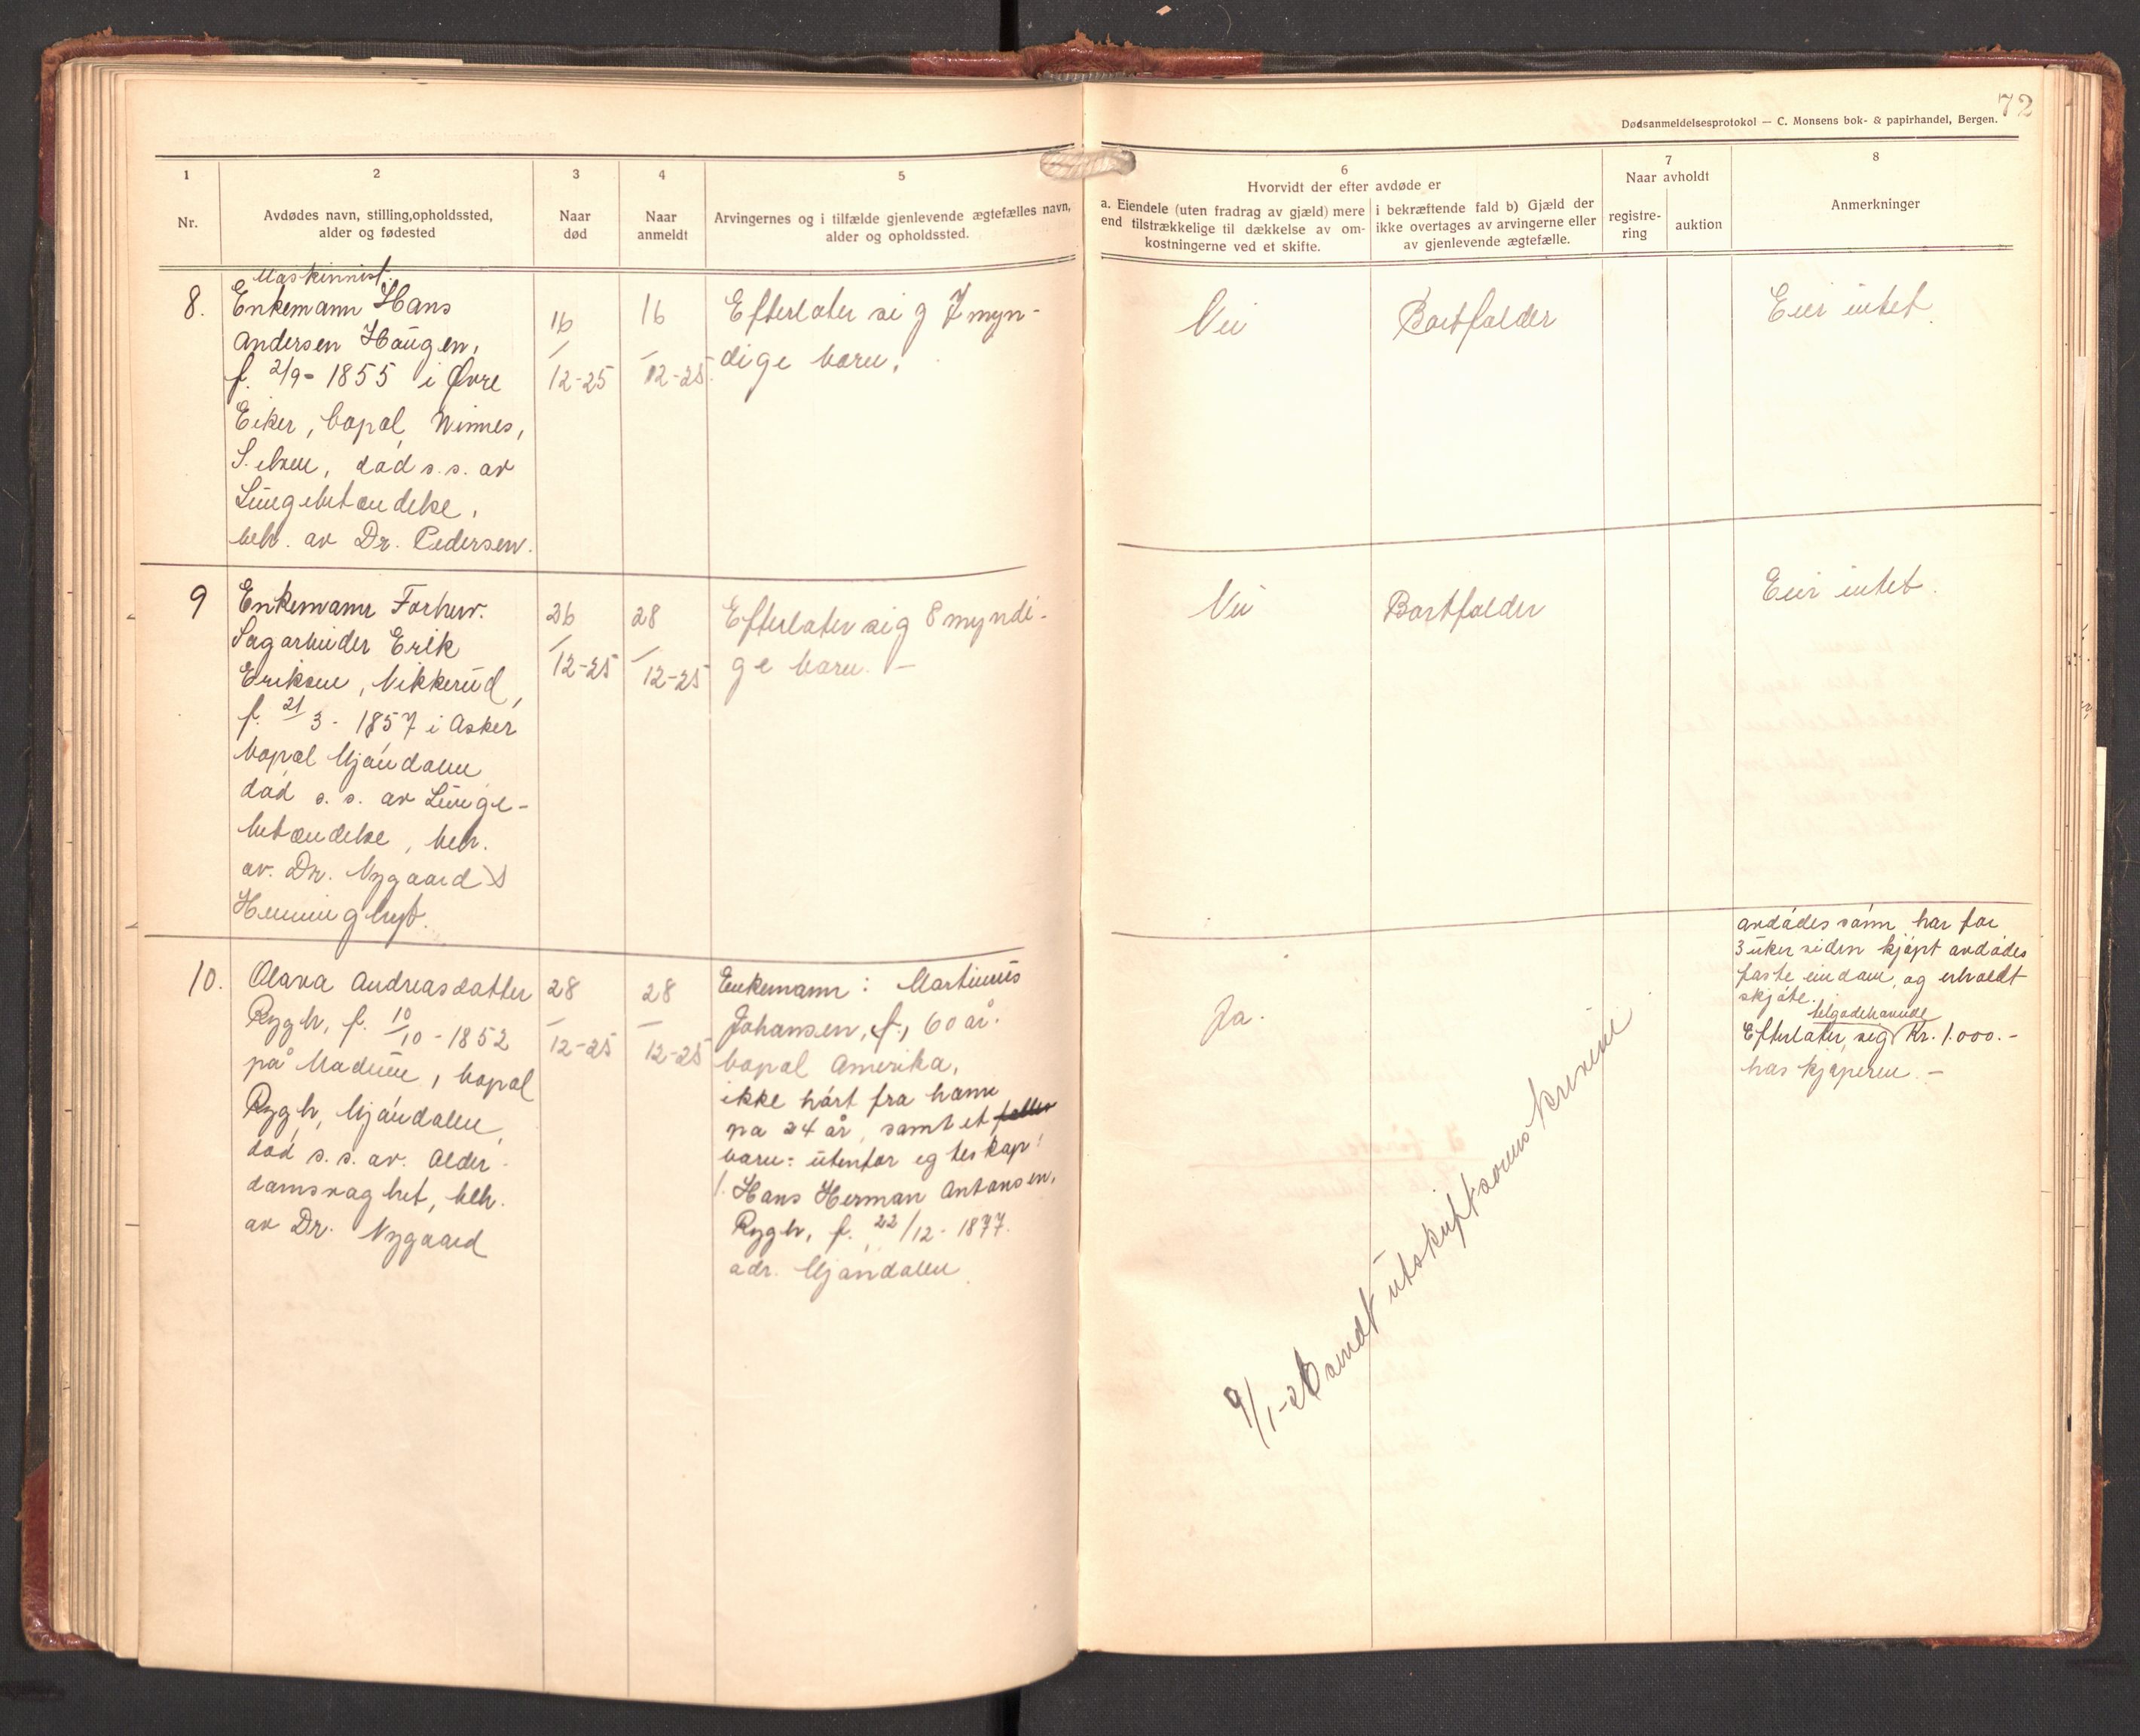 72
Dødsanmeldelsesprotokol — C. Monsens bok- & papirhandel, Bergen.
1
Nr.
2
Avdødes navn, stilling, opholdssted,
alder og fødested
3
Naar
død
4
Naar
anmeldt
5
Arvingernes og i tilfælde gjenlevende ægtefælles navn,
alder og opholdssted.
6
Hvorvidt der efter avdøde er
a. Eiendele (uten fradrag av gjæld) mere
end tilstrækkelige til dækkelse av om-
kostningerne ved et skifte.
i bekræftende fald b) Gjæld der
ikke overtages av arvingerne eller
av gjenlevende ægtefælle.
7
Naar avholdt
registre-
ring
auktion
8
Anmerkninger
8.
Maskinnist.
Enkemann Hans
Andersen Haugen,
f. 2/9- 1855 i Øvre
Eiker, bopæl Winnes,
S. elven, død s.s. av
Lungebetændelse,
beh. av Dr. Pedersen.
16
/
12-25
16
/
12-25.
Efterlater sig 7 myn-
dige barn.
Nei
Bortfalder
Eier intet.
9
Enkemann Forhenv.
Sagarbeider Erik
Eriksen, Nikkerud,
f. 21/3 - 1857 i Asker
bopæl Mjøndalen
død s.s. av Lunge-
betændelse, beh.
av. Dr. Nygaard &
26
/
12-25
28
/
12-25
Efterlater sig 8 myndi-
ge barn. —
Nei
Bortfalder
Eier intet.
10.
Olava Andreasdatter
Rygh, f. 10/10 - 1852
på Madeüe, bopæl
Rygh, Mjøndalen,
død s.s. av. Alder-
domsvaghet, beh.
av Dr. Nygaard
28
/
12-25
28
/
12-25
Enkemann: Martinus
Johansen, f., 60 år.
bopæl Amerika,
ikke hørt fra ham
på 24 år, samt et felles
barn: utenfor egteskap:
1. Hans Herman Antonsen,
Rygh, f. 22/12 - 1877.
adr. Mjøndalen
Ja.
9/1-26 sendt utskrift sorenskriveren
avdødes sønn har for
3 uker siden kjøpt avdødes
faste eiendom, og erholdt
skjøte.
tilgodehavende
Efterlater sig Kr. 1.000.-
hos kjøperen. —